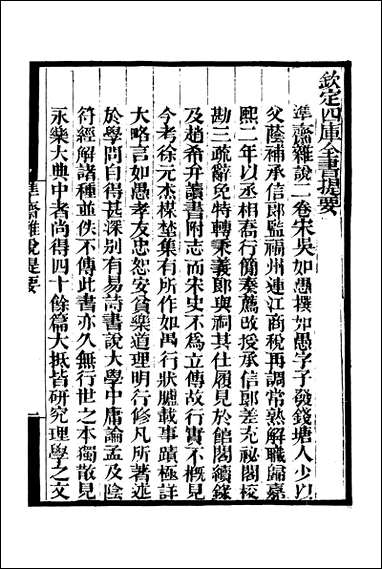 欽定四庫全書提要
準齋雜說二卷宋吳如愚撰如愚字子發錢塘人少以
父蔭補承信郎監福州連江商稅再調常熟解職歸嘉
熙二年以丞相喬行簡奏薦改授承信郎差充祕閣校
勘三疏辭免特轉秉義郎與祠其仕履見於館閣續錄
及趙希弁讀書附志而宋史不為立傳故行實不概見
今考徐元杰楳埜集有所作如愚行狀臚載事蹟極詳
大略言如愚孝友忠恕安貧樂道理明行修凡所著述
於學問自得甚深別有易詩書說大學中庸論孟及陰
符經解諸種並佚不傳此書亦久無行世之本獨散見
永樂大典中者尚得四十餘篇大抵皆研究理學之文
準齋雜說提要
一